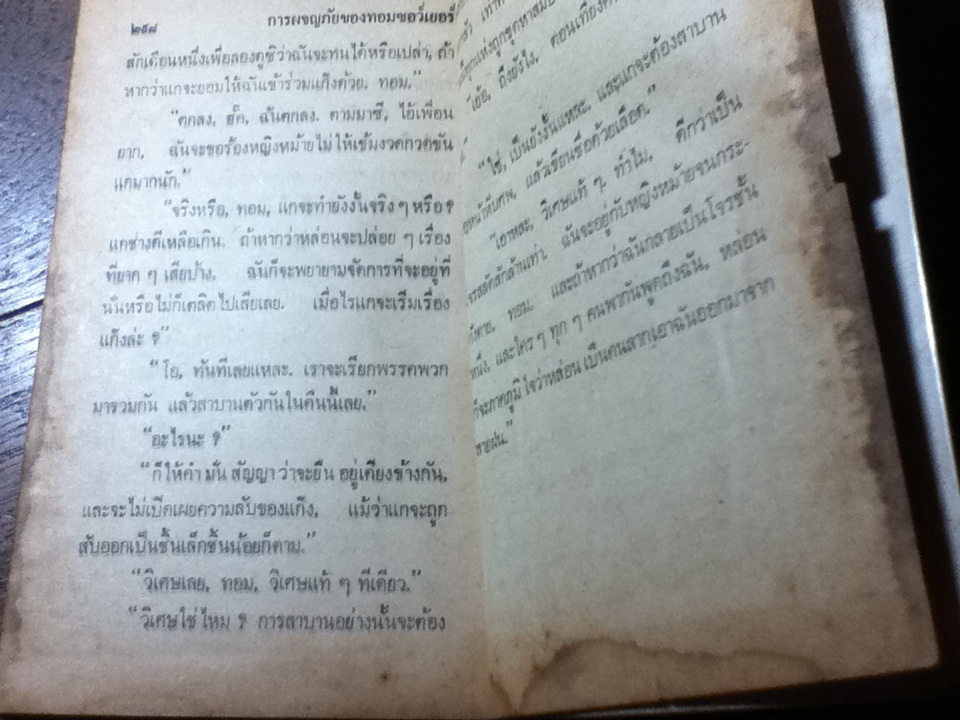 ๒๕๘ การผจญภัยของทอมซอว์เยอร์
สักเดือนหนึ่งเพื่อลองดูซิว่าฉันจะทนได้หรือเปล่า, ถ้า
หากว่าแกจะยอมให้ฉันเข้าร่วมแก๊งด้วย. ทอม."
"ตกลง, ฮั๊ค, ฉันตกลง. ตามมาซี, ไอ้เพื่อน
ยาก, ฉันจะขอร้องหญิงหม้ายไม่ให้เข้มงวดกวดขัน
แกมากนัก."
"จริงหรือ, ทอม, แกจะทำยังงั้นจริง ๆ หรือ ?
แกช่างดีเหลือเกิน. ถ้าหากว่าหล่อนจะปล่อย ๆ เรื่อง
ที่ยาก ๆ เสียบ้าง, ฉันก็จะพยายามจัดการที่จะอยู่ที่
นั่นหรือไม่ก็เตลิดไปเสียเลย. เมื่อไรแกจะเริ่มเรื่อง
แก๊งล่ะ ?"
"โอ, ทันทีเลยแหละ. เราจะเรียกพรรคพวก
มารวมกัน แล้วสาบานตัวกันในคืนนี้เลย."
"อะไรนะ ?"
"ก็ให้คำมั่นสัญญาว่าจะยืนอยู่เคียงข้างกัน,
และจะไม่เปิดเผยความลับของแก๊ง, แม้ว่าแกจะถูก
สับออกเป็นชิ้นเล็กชิ้นน้อยก็ตาม."
"วิเศษเลย, ทอม, วิเศษแท้ ๆ ทีเดียว."
"วิเศษใช่ไหม ? การสาบานอย่างนั้นจะต้อง
"เอ้อ, ถึงยังไง, ตอนเที่ยงคืน
"ใช่, เป็นยังงั้นแหละ. และแกจะต้องสาบาน
หน้าหีบศพ, แล้วเซ็นชื่อด้วยเลือด."
"เอาหละ, วิเศษแท้ ๆ. ทำไม, ดีกว่าเป็น
ฉันจะอยู่กับหญิงหม้ายจนกระ-
ทอม. และถ้าหากว่าฉันกลายเป็นโจรชั้น
หนึ่ง, และใคร ๆ ทุก ๆ คนพากันพูดถึงฉัน, หล่อน
ก็จะภาคภูมิใจว่าหล่อนเป็นคนลากเอาฉันออกมาจาก
สายฝน."